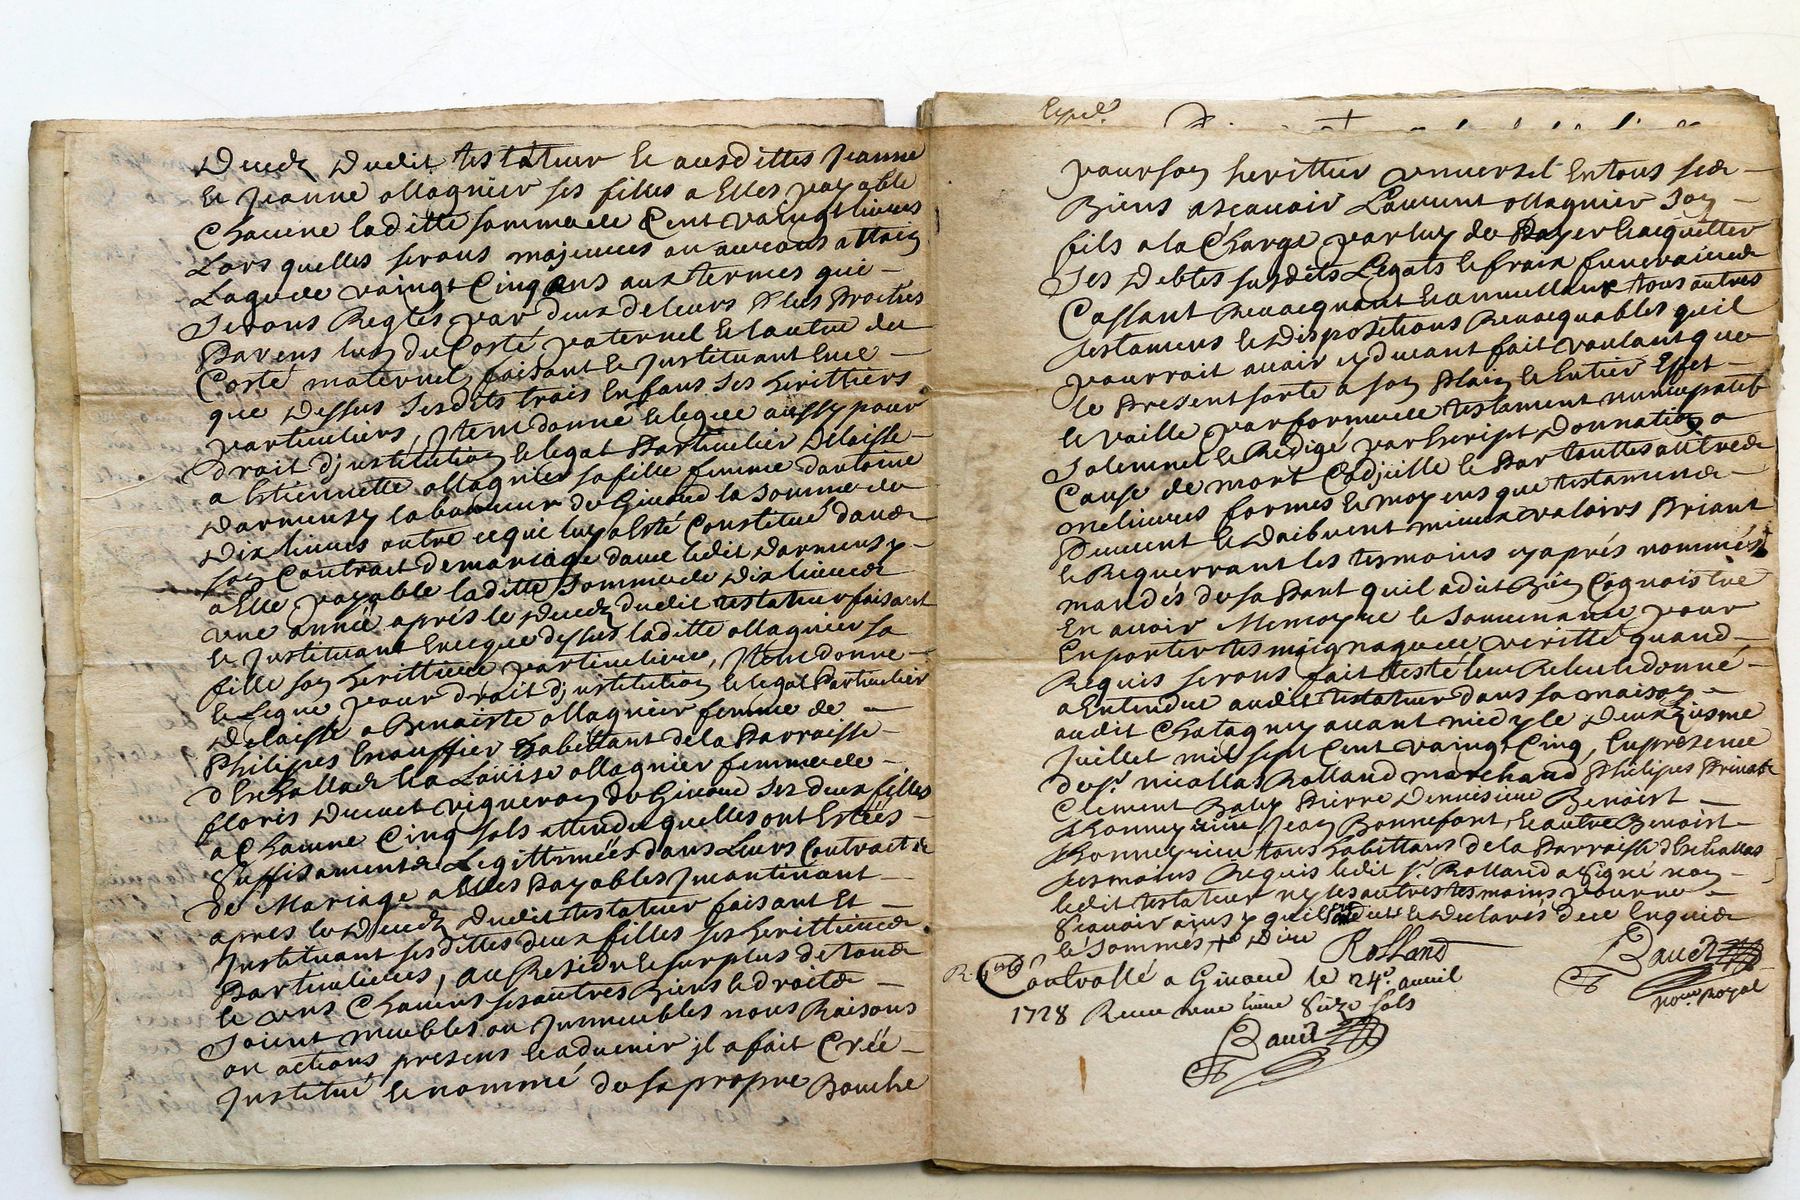 Deceds Dudit testateur le ausdittes Jeanne
le Jeanne ollagnier ses filles a Elles payable
Chacune laditte somme de Cent vaingt livres
Lors quelles serons majeures ou aurons attain
Laage de vaingt Cinq ans aux termes qui
Serons Regles par deux de leurs Plus Proches
Parens lun du Costé paternel le lautre du
Costé maternel faisant le Justituant en ce
que Dessus Sesdits trois Enfans Ses herittiers
particuliers, Jtem donne le legue aussy pour
droit d'justitution le legat Particulier Delaisse
a Estiennette ollagnier sa fille femme dantoine
Darmensy laboureur de Givord la Somme de
Dix livres outre ce qui luy a Esté Constitué dans
son Contract de mariage avec ledit Darmensy
a Elle payable laditte Somme de Dix livres
vne année aprés le Deceds dudit testateur faisant
le Justituant En ce que dessus laditte ollagnier sa
fille son herittiere particuliere, Jtem donne
le Legue pour droit d'justitution le legat Particulier
Delaisse a Benoiste ollagnier femme de
Philipes habittant de la Parroisse
d'Echallas le a Loüise ollagnier femme de
floris vigneron de Givord Ses deux filles
a Chacune Cinq Sols attendu quelles ont Estées
Suffisament Legittimées dans Leurs Contract
de Mariage a Elles Payables Jncontinant
apres le Deceds Dudit testateur faisant Et
Justituant sesdittes deux filles ses herittieres
Particulieres, au Residu le surplus de tous
le vns Chacuns ses autres Biens le droits
Soient meubles ou Jmmeubles nons Raisons
ou actions presens le aduenir il a fait Créé
Justitué le nommé de sa propre Bouche
Expéd.
pour son herittier vniversel En tous ses
Biens ascauoir Laurent ollagnier Son
fils a la Charge par luy de Payer le acquitter
Ses Debtes susdits Legats le fraix funeraires
Cassant Reuocquant le annullant tous autres
testamens le Dispositions Reuocquables quil
pourroit auoir cy deuant fait voulant que
le Present sorte a son Plain le Entier Effet
le vaille par forme de testament nuncupatif
Solemnel le Redigé par Escript Donnation a
Cause de mort Codicille le Par touttes autres
melieures formes le moyens que testamens
Peuuent le Doibuent mieux valoirs Priant
le Requerrant les tesmoins cy aprés nommés
mandés de sa Part quil a dit Bien Cognoistre
En auoir Memoyre le Souuenance pour
En porter tesmoignage de veritté quand
Requis serons fait testé leu Releu le donné
a Entendre audit testateur dans sa maison
audit Chatagny auant midy le Deuxiesme
Juillet mil sept Cent vaingt Cinq, En presence
de Sr. nicollas Rolland marchand Philipes Priuat
Clement Pierre Benoist
Jean Bonnefont, le autre Benoist
tous habittans de la Parroisse d'Echallas
tesmoins Requis ledit Sr. Rolland a Signé non
ledit testateur ny les autres tesmoins pour ne
Scauoir ainsy quils ont le Declarés de ce Enquis
le Sommés + Dire Rolland
Bauet
Controllé a Givord le 24e. auril
nore royal
1728 Receu vne liure Seize sols
Bauet